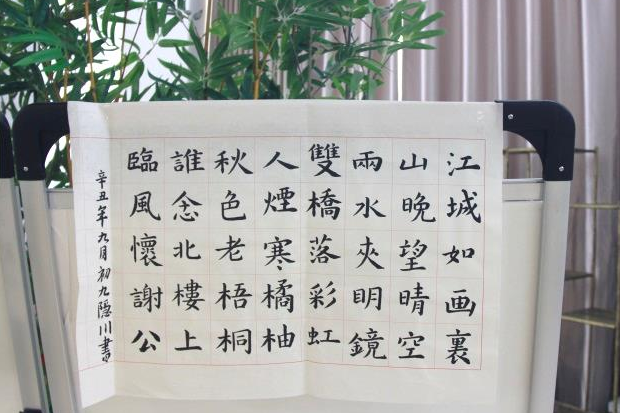 江城如画裏
山晚望晴空
兩水夾明鏡
雙橋落彩虹
人煙寒橘柚
秋色老梧桐
誰念北樓上
臨風懷謝公
辛丑年九月初九隐川書